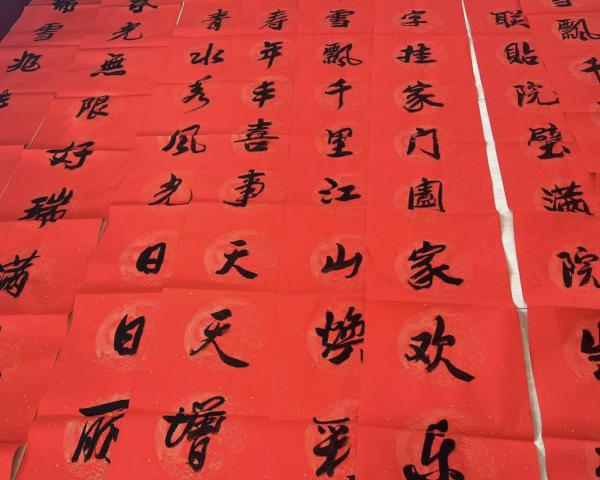 雪飘千
联貼院璧满院
字挂家门園家欢乐
雪飘千里江山焕采
寿年丰喜事天天增
青水秀风光日日丽
春光無限好瑞满
雪兆